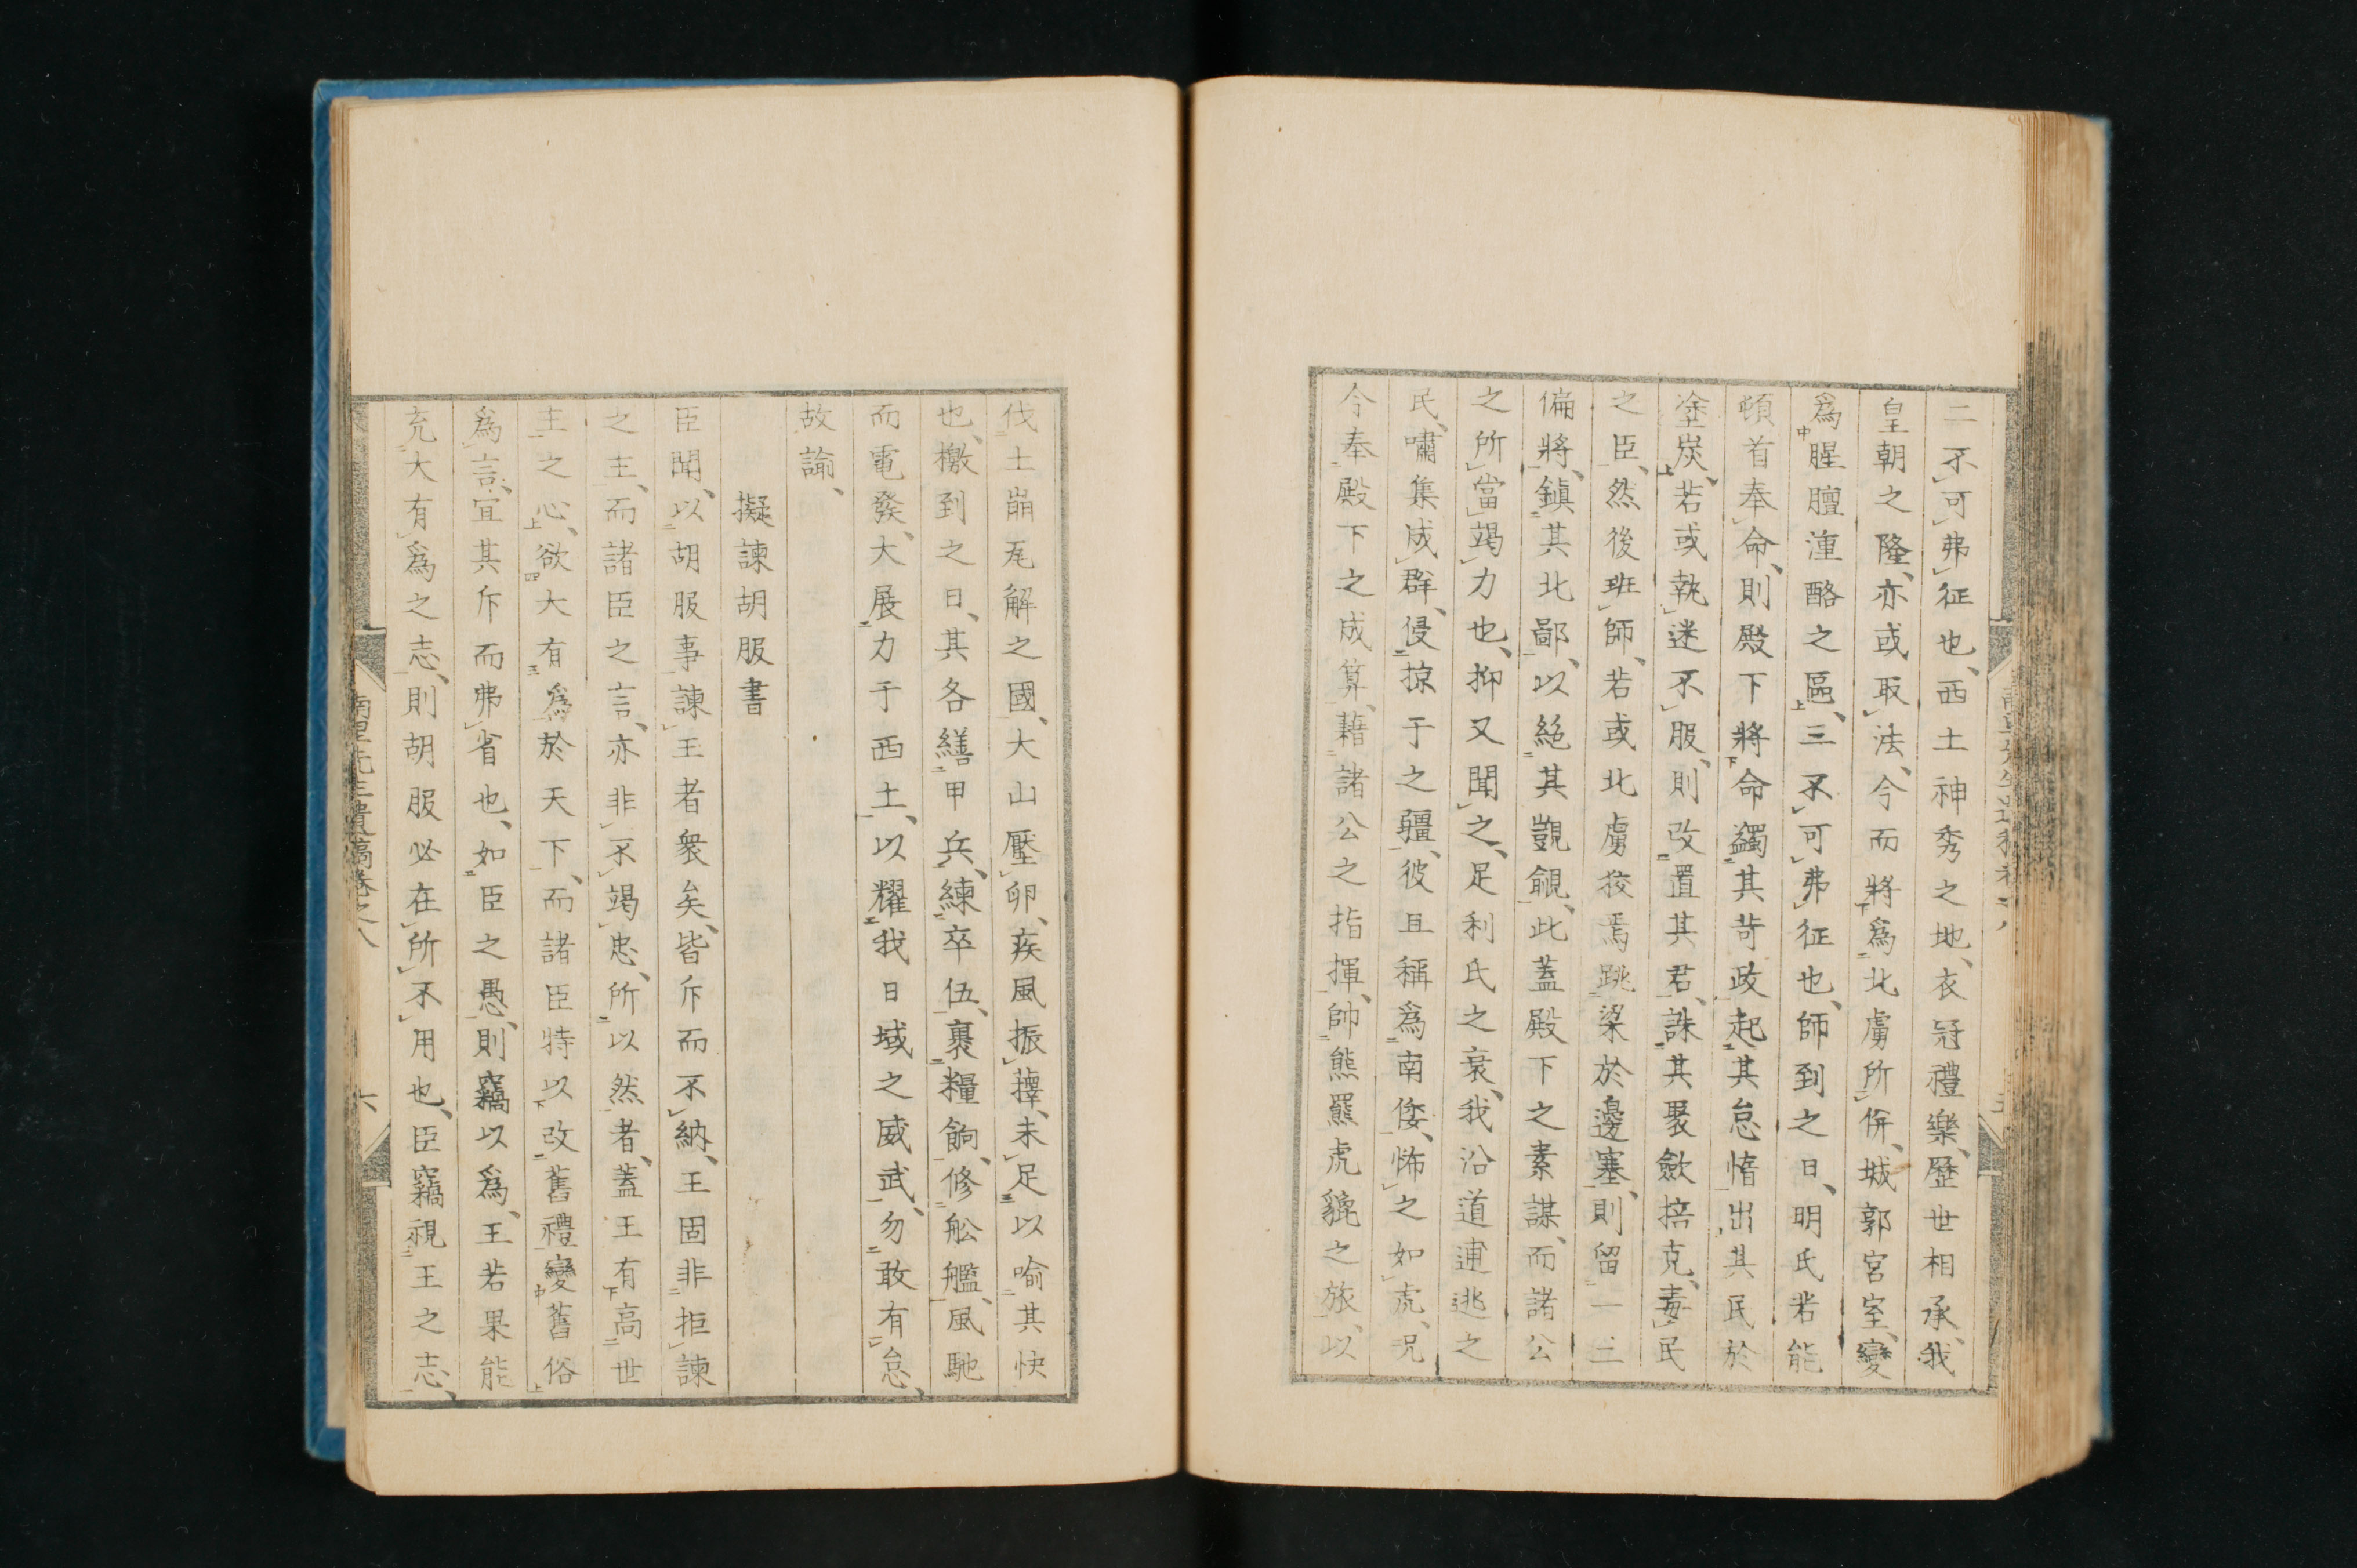 二不可弗征也、西土神秀之地、衣冠禮樂、歷世相承、我
皇朝之隆、亦或取法、今而將爲北虜所併、城郭宮室、變
爲腥膻湩酪之區、三不可弗征也、師到之日、明氏若能
頓首奉命、則殿下將命蠲其苛政、起其怠惰、出其民於
塗炭、若或執迷不服、則改置其君、誅其聚歛掊克、毒民
之臣、然後班師、若或北虜狡焉跳梁於邊塞、則留一二
偏將、鎮其北鄙、以絕其覬覦、此蓋殿下之素謀、而諸公
之所當竭力也、抑又聞之、足利氏之衰、我沿道逋逃之
民、嘯集成群、侵掠于之疆、彼且稱爲南倭、怖之如虎、況
今奉殿下之成算、藉諸公之指揮、帥熊羆虎貔之旅、以
伐土崩瓦解之國、大山壓卵、疾風振蘀、未足以喻其快
也、檄到之日、其各繕甲兵、練卒伍、裹糧餉、修舩艦、風馳
而電發、大展力于西土、以耀我日域之威武、勿敢有怠、
故諭、
擬諫胡服書
臣聞、以胡服事諫王者衆矣、皆斥而不納、王固非拒諫
之主、而諸臣之言、亦非不竭忠、所以然者、蓋王有高世
主之心、欲大有爲於天下、而諸臣特以改舊禮變舊俗
爲言、宜其斥而弗省也、如臣之愚、則竊以爲、王若果能
充大有爲之志、則胡服必在所不用也、臣竊視王之志、
南里先生遺稿卷之八
六